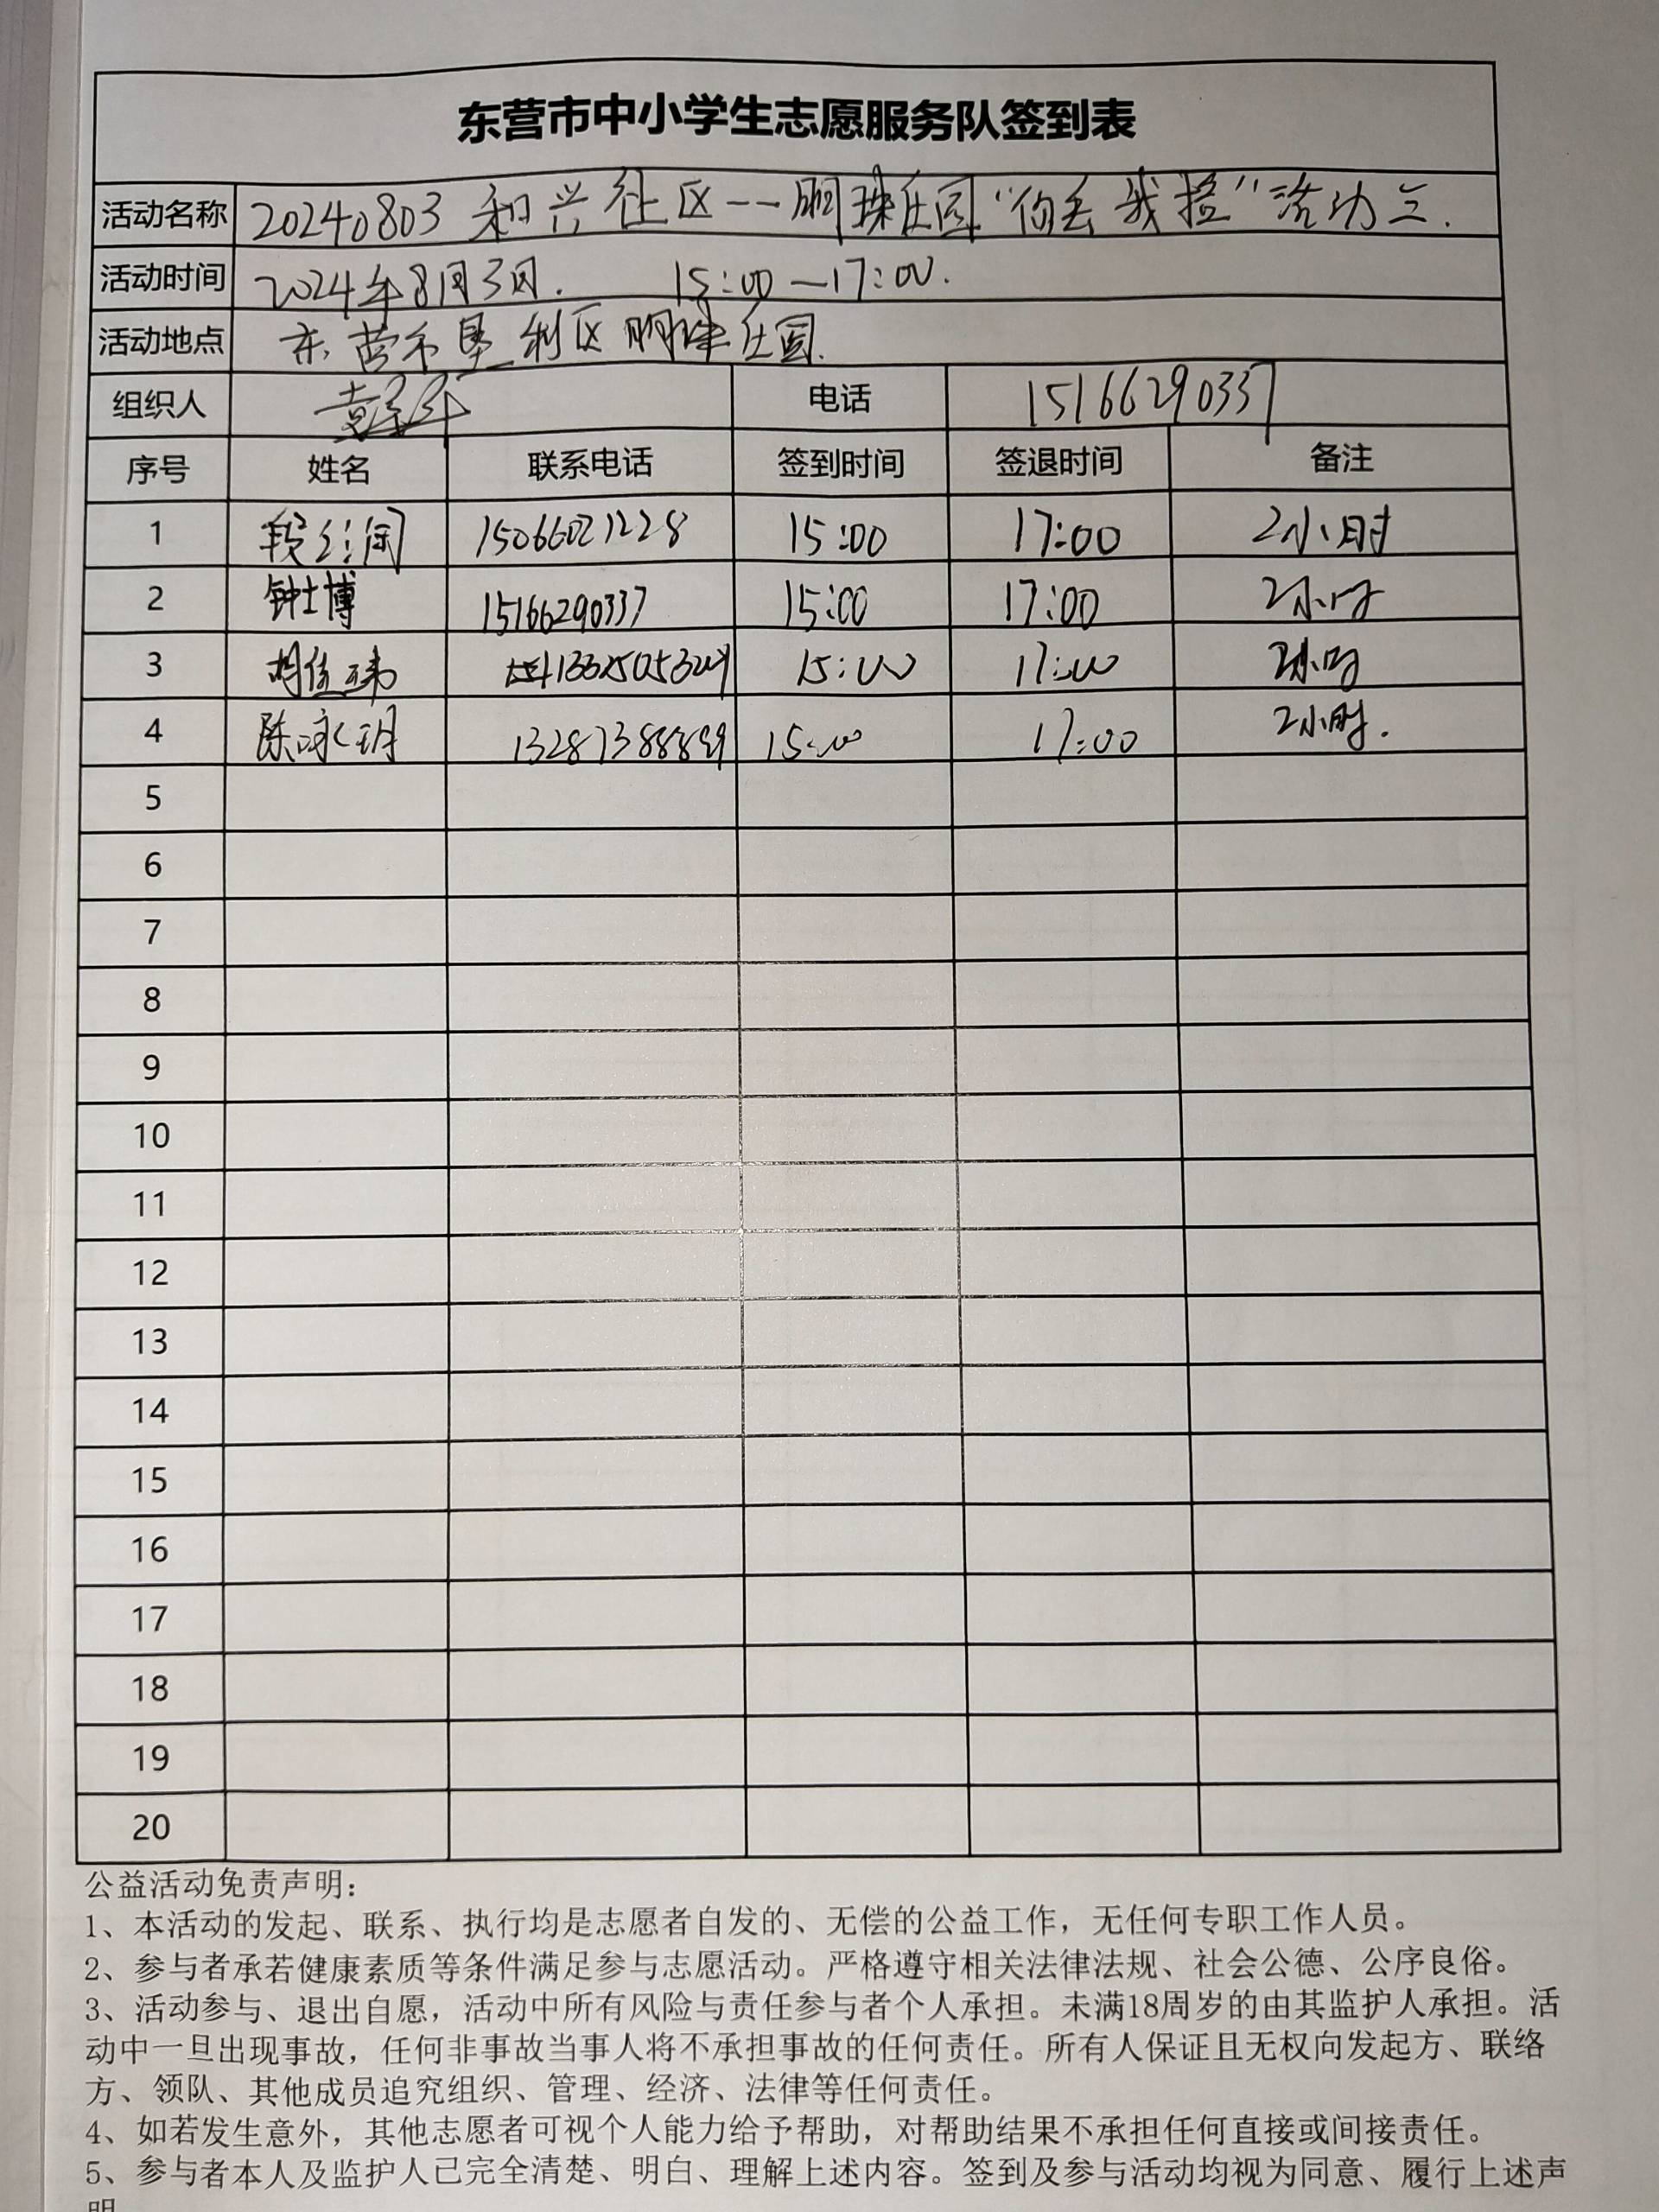 东营市中小学生志愿服务队签到表
活动名称 20240803 和兴社区--明珠庄园"你丢我捡"活动三.
活动时间 2024年8月3日. 15:00—17:00.
活动地点 东营市垦利区明珠庄园.
组织人 电话 15166290337
序号 姓名 联系电话 签到时间 签退时间 备注
1 15066021228 15:00 17:00 2小时
2 钟士博 15166290337 15:00 17:00 2小时
3 胡佳玮 15:00 17:00 2小时
4 陈咏玥 13287388899 15:00 17:00 2小时.
5
6
7
8
9
10
11
12
13
14
15
16
17
18
19
20
公益活动免责声明:
1、本活动的发起、联系、执行均是志愿者自发的、无偿的公益工作，无任何专职工作人员。
2、参与者承若健康素质等条件满足参与志愿活动。严格遵守相关法律法规、社会公德、公序良俗。
3、活动参与、退出自愿，活动中所有风险与责任参与者个人承担。未满18周岁的由其监护人承担。活
动中一旦出现事故，任何非事故当事人将不承担事故的任何责任。所有人保证且无权向发起方、联络
方、领队、其他成员追究组织、管理、经济、法律等任何责任。
4、如若发生意外，其他志愿者可视个人能力给予帮助，对帮助结果不承担任何直接或间接责任。
5、参与者本人及监护人已完全清楚、明白、理解上述内容。签到及参与活动均视为同意、履行上述声
明